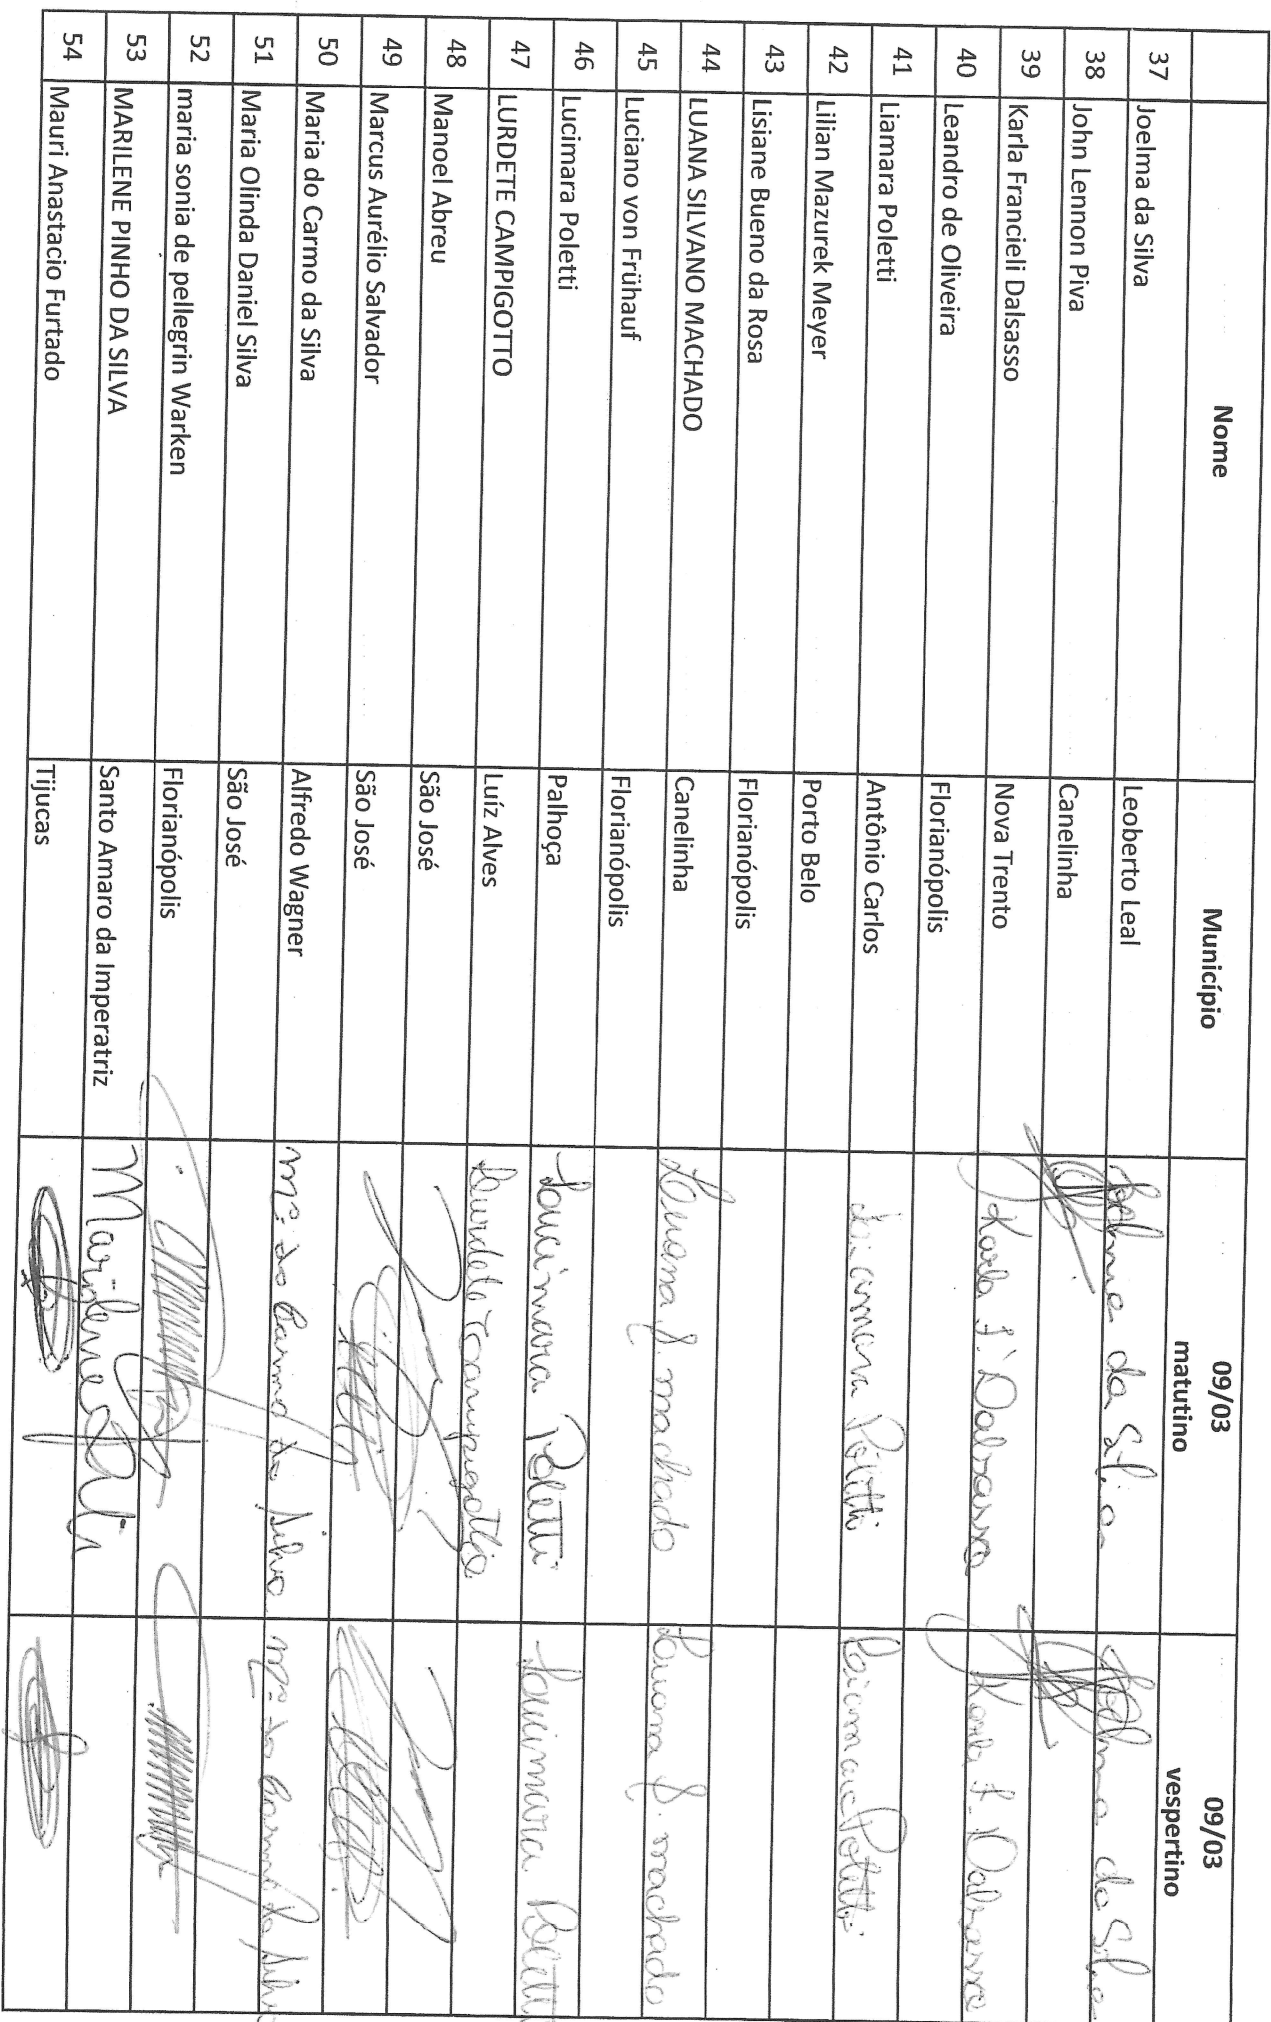 Nome Município 09/03 matutino 09/03 vespertino
37 Joelma da Silva Leoberto Leal Joelma da Silva Joelma da Silva
38 John Lennon Piva Canelinha
39 Karla Francieli Dalsasso Nova Trento Karla F. Dalsasso Karla F. Dalsasso
40 Leandro de Oliveira Florianópolis
41 Liamara Poletti Antônio Carlos Liamara Poletti Liamara Poletti
42 Lilian Mazurek Meyer Porto Belo
43 Lisiane Bueno da Rosa Florianópolis
44 LUANA SILVANO MACHADO Canelinha Luana S. machado Luana S. machado
45 Luciano von Frühauf Florianópolis
46 Lucimara Poletti Palhoça Lucimara Poletti Lucimara Poletti
47 LURDETE CAMPIGOTTO Luíz Alves Lurdete Campigotto
48 Manoel Abreu São José
49 Marcus Aurélio Salvador São José
50 Maria do Carmo da Silva Alfredo Wagner Mª do Carmo da Silva Mª do Carmo da Silva
51 Maria Olinda Daniel Silva São José
52 maria sonia de pellegrin Warken Florianópolis
53 MARILENE PINHO DA SILVA Santo Amaro da Imperatriz Marilene
54 Mauri Anastacio Furtado Tijucas